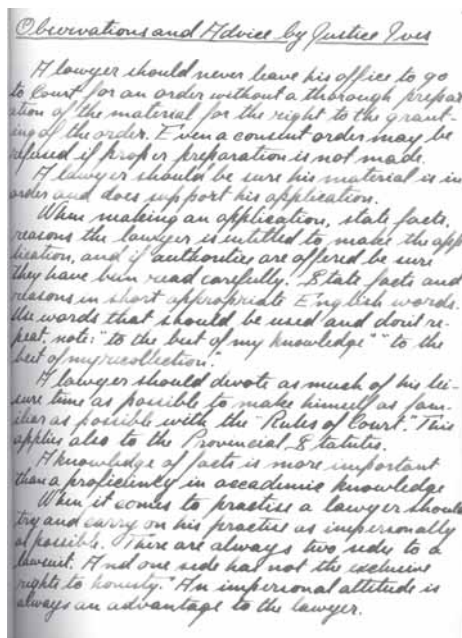 Observations and Advice by Justice Ives
A lawyer should never leave his office to go
to Court for an order without a thorough prepar
ation of the material for the right to the grant-
ing of the order. Even a consent order may be
refused if proper preparation is not made.
A lawyer should be sure his material is in
order and does support his application.
When making an application, state facts,
reasons the lawyer is intitled to make the app
lication, and if authorities are offered be sure
they have been read carefully. State facts and
reasons in short appropriate English words.
Use words that should be used and don't re-
peat, note: "to the best of my knowledge" "to the
best of my recollection."
A lawyer should devote as much of his lei-
sure time as possible to make himself as fam-
iliar as possible with the "Rules of Court." This
applies also to the Provincial Statutes.
A knowledge of facts is more important
than a proficiency in accademic knowledge
When it comes to practise a lawyer should
try and carry on his practise as impersonally
as possible. There are always two sides to a
lawsuit. And one side has not the exclusive
rights to honesty." An impersonal attitude is
always an advantage to the lawyer.